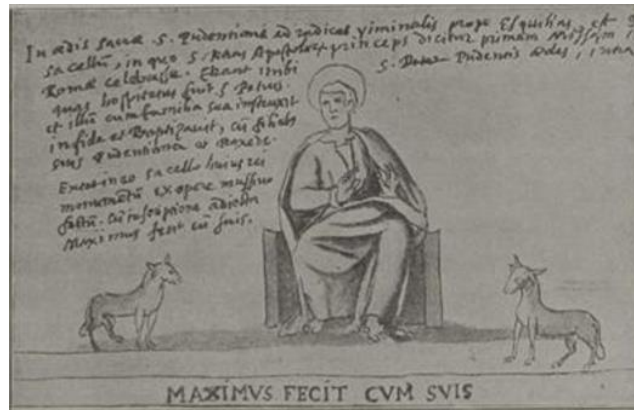 In ædis sacræ S. Pudentianæ ad radices viminalis prope Esquilias, est
sacellum, in quo S. Petrus Apostolorum princeps dicitur primam Missam
Romæ celebrasse. Erant inibi
S. Pudentis ædes, intra
quas hospitatus fuit S. Petrus
et illum cum familia sua instruxit
in fide et Baptizavit, cū filiabus
suis Pudentiana et Praxede.
Extat in eo sacello huius rei
monumentū ex opere musivo
factū. cū inscriptione adiecta
Maximus fecit cū suis.
MAXIMVS FECIT CVM SVIS